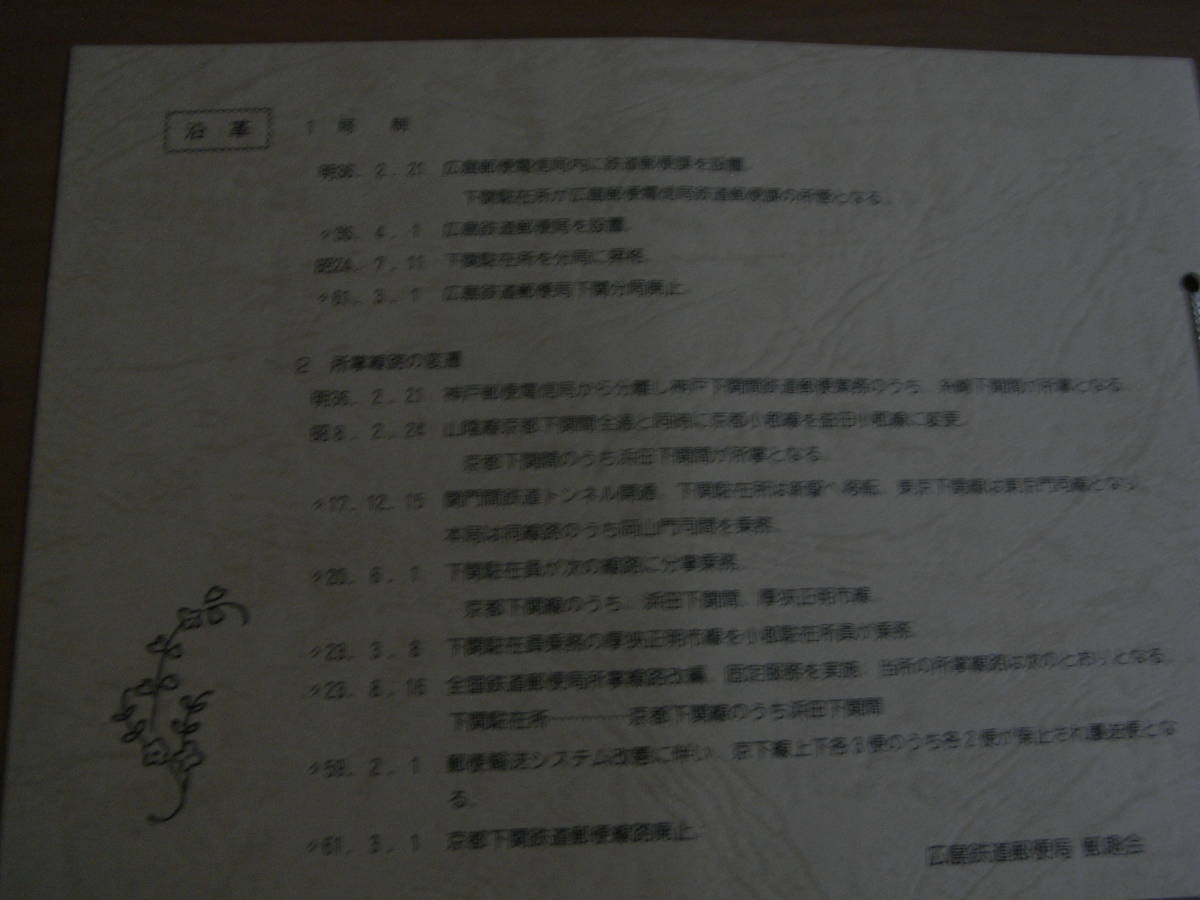 沿革
1 局 制
明36. 2. 21 広島郵便電信局内に鉄道郵便課を設置。
下関駐在所が広島郵便電信局鉄道郵便課の所管となる。
〃36. 4. 1 広島鉄道郵便局を設置。
昭24. 7. 11 下関駐在所を分局に昇格。
〃61. 3. 1 広島鉄道郵便局下関分局廃止。
2 所掌線路の変遷
明36. 2. 21 神戸郵便電信局から分離し神戸下関間鉄道郵便乗務のうち、糸崎下関間が所掌となる。
昭8. 2. 24 山陰線京都下関間全通と同時に京都小郡線を飯田小郡線に変更。
京都下関間のうち浜田下関間が所掌となる。
〃17. 12. 15 関門間鉄道トンネル開通、下関駐在所は新駅へ移転、東京下関線は東京門司線となり、
本局は同線路のうち岡山門司間を乗務。
〃20. 6. 1 下関駐在員が次の線路に分掌乗務。
京都下関線のうち、浜田下関間、厚狭正明市線。
〃23. 3. 8 下関駐在員乗務の厚狭正明市線を小郡駐在所員が乗務。
〃23. 8. 16 全国鉄道郵便局所掌線路改編、固定服務を実施、当所の所掌線路は次のとおりとなる。
下関駐在所————京都下関線のうち浜田下関間
〃59. 2. 1 郵便輸送システム改善に伴い、京下線上下各3便のうち各2便が廃止され護送便とな
る。
〃61. 3. 1 京都下関鉄道郵便線路廃止。
広島鉄道郵便局 郵趣会